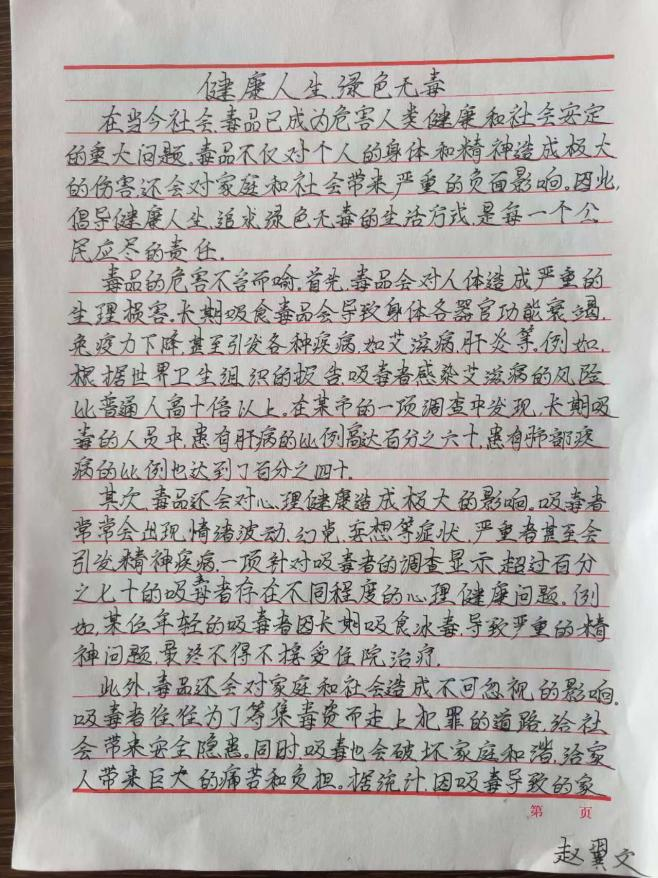 健康人生、绿色无毒
在当今社会,毒品已成为危害人类健康和社会安定
的重大问题,毒品不仅对个人的身体和精神造成极大
的伤害,还会对家庭和社会带来严重的负面影响。因此,
倡导健康人生、追求绿色无毒的生活方式,是每一个公
民应尽的责任.
毒品的危害不言而喻.首先,毒品会对人体造成严重的
生理损害.长期吸食毒品会导致身体各器官功能衰竭,
免疫力下降,甚至引发各种疾病,如艾滋病,肝炎等。例如,
根据世界卫生组织的报告吸毒者感染艾滋病的风险
比普通人高十倍以上。在某市的一项调查中发现,长期吸
毒的人员中,患有肝病的比例高达百分之六十,患有肺部疾
病的比例也达到了百分之四十.
其次,毒品还会对心理健康造成极大的影响。吸毒者
常常会出现,情绪波动,幻觉,妄想等症状,严重者甚至会
引发精神疾病,一项针对吸毒者的调查显示,超过百分
之七十的吸毒者存在不同程度的心理健康问题。例
如,某位年轻的吸毒者因长期吸食冰毒,导致严重的精
神问题,最终不得不接受住院治疗.
此外,毒品还会对家庭和社会造成不可忽视的影响.
吸毒者往往为了筹集毒资而走上犯罪的道路,给社
会带来安全隐患。同时吸毒也会破坏家庭和谐,给家
人带来巨大的痛苦和负担。据统计,因吸毒导致的家
第 页
赵翼文